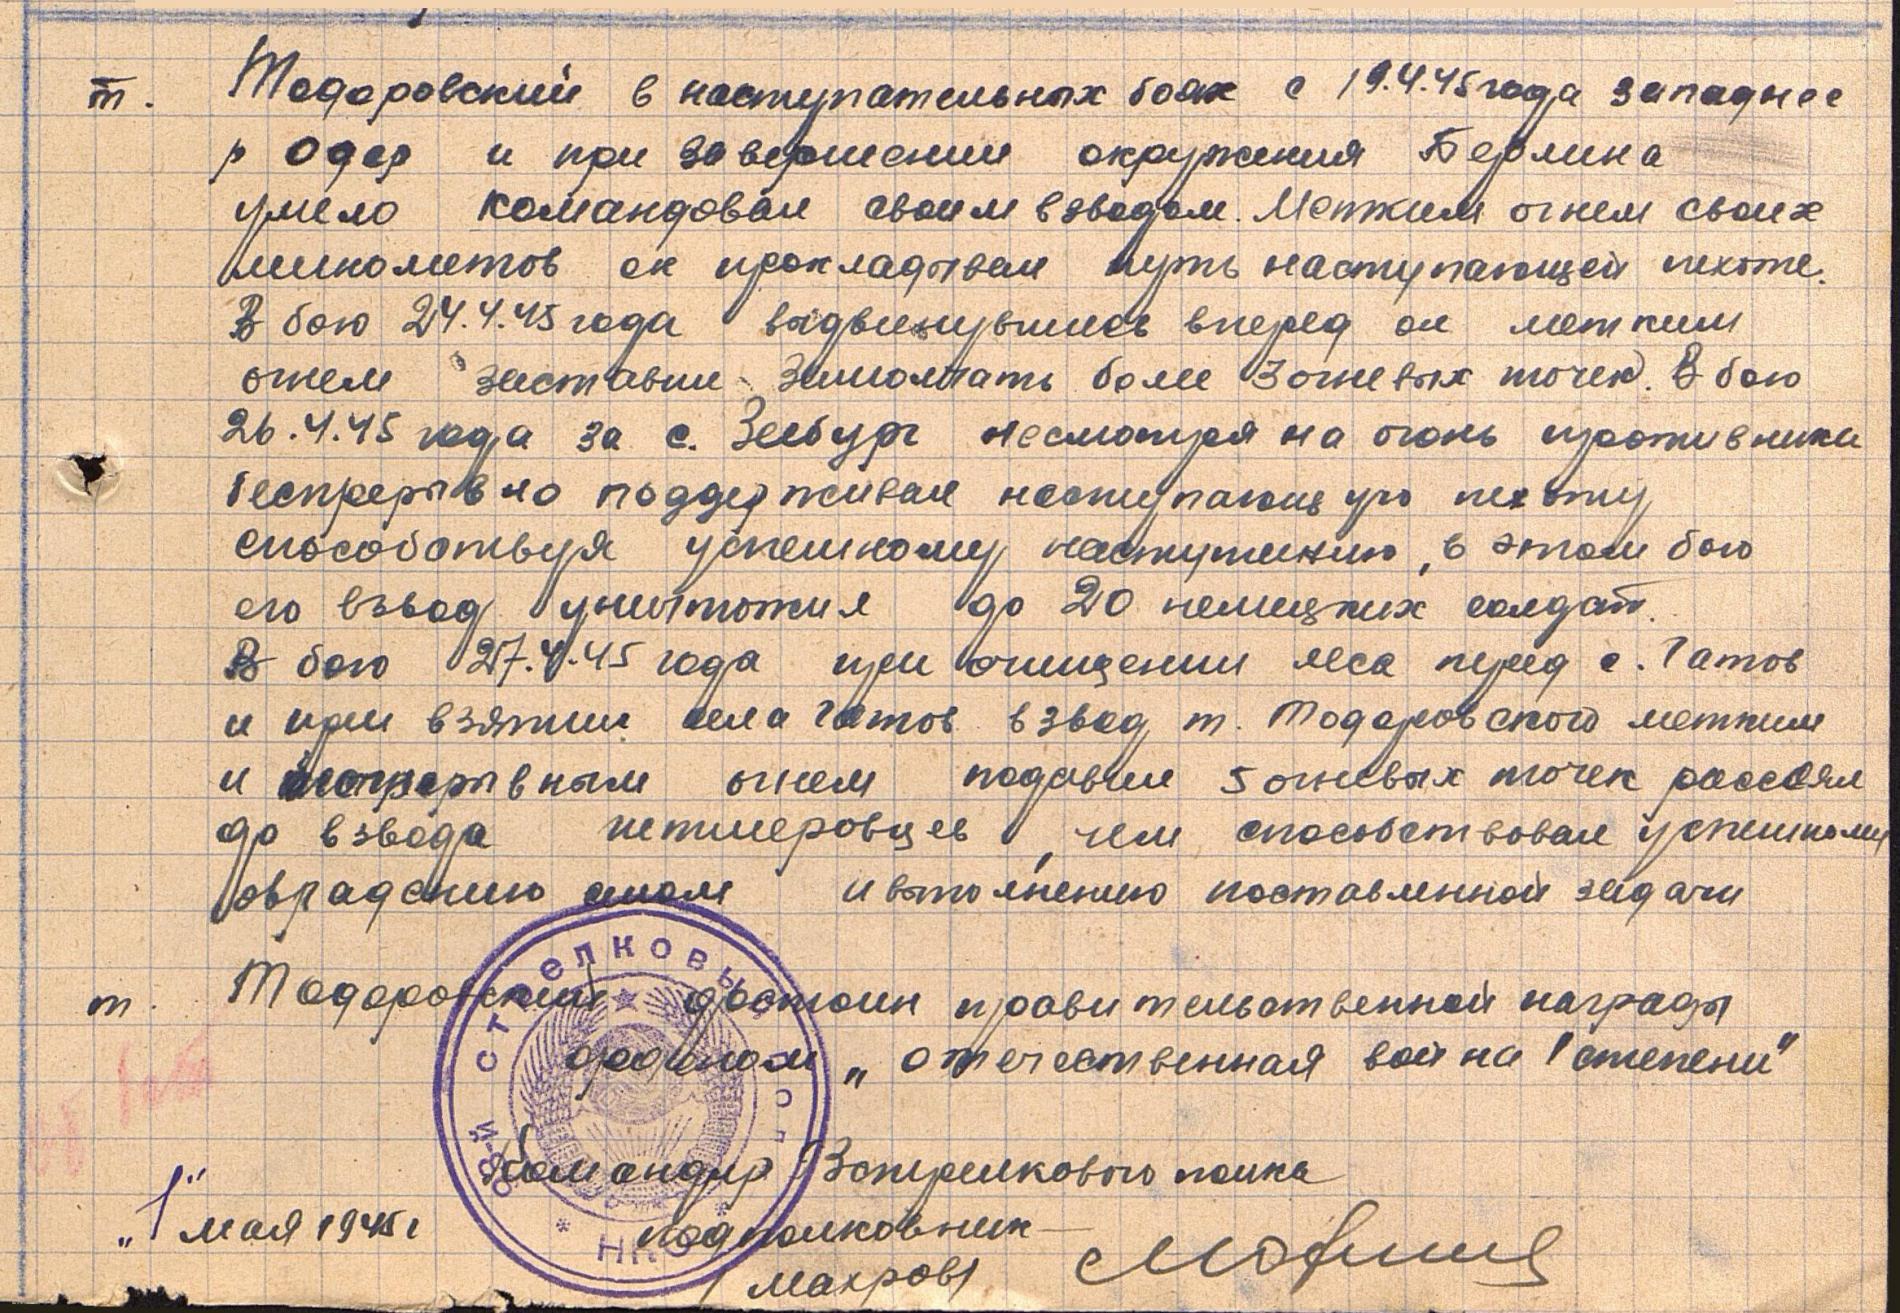 т. Тодоровский в наступательных боях с 19.4.45 года западнее
р Одер и при завершении окружения Берлина
умело командовал своим взводом. Метким огнем своих
минометов он прокладывал путь наступающей пехоте.
В бою 24.4.45 года выдвинувшись вперед он метким
огнем заставил замолчать более 3 огневых точек. В бою
26.4.45 года за с. Зеебург несмотря на огонь противника
беспрерывно поддерживал наступающую пехоту
способствуя успешному наступлению, в этом бою
его взвод уничтожил до 20 немецких солдат.
В бою 27.4.45 года при очищении леса перед с. Гатов
и при взятии села Гатов взвод т. Тодоровского метким
и беспрерывным огнем подавил 5 огневых точек рассеял
до взвода гитлеровцев, чем способствовал успешному
овладению селом и выполнению поставленной задачи
т. Тодоровский достоин правительственной награды
орденом „Отечественная война I степени"
Командир стрелкового полка
подполковник
/Махров/
„1" мая 1945 г
СТРЕЛКОВЫЙ
НКО